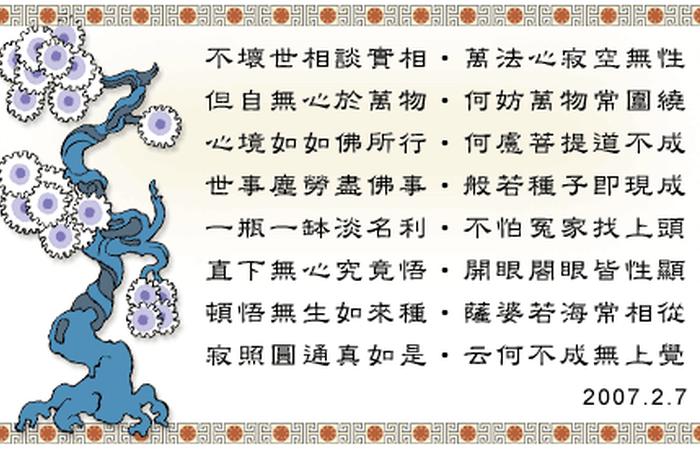 不壞世相談實相・萬法心寂空無性
但自無心於萬物・何妨萬物常圍繞
心境如如佛所行・何慮菩提道不成
世事塵勞盡佛事・般若種子即現成
一瓶一缽淡名利・不怕冤家找上頭
直下無心究竟悟・開眼闔眼皆性顯
頓悟無生如來種・薩婆若海常相從
寂照圓通真如是・云何不成無上覺
2007.2.7